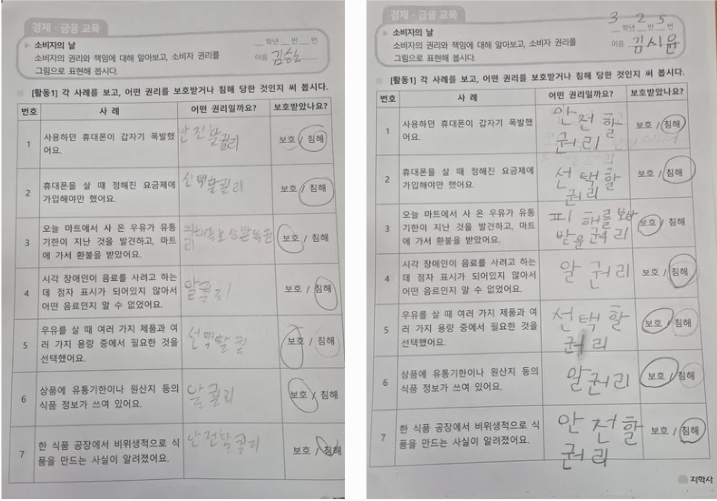 경제·금융 교육
소비자의 날
소비자의 권리와 책임에 대해 알아보고, 소비자 권리를
그림으로 표현해 봅시다.
학년 반 번
이름
[활동1] 각 사례를 보고, 어떤 권리를 보호받거나 침해 당한 것인지 써 봅시다.
번호 사 례 어떤 권리일까요? 보호받았나요?
1 사용하던 휴대폰이 갑자기 폭발했
어요.
보호 / 침해
2 휴대폰을 살 때 정해진 요금제에
가입해야만 했어요.
보호 / 침해
3 오늘 마트에서 사 온 우유가 유통
기한이 지난 것을 발견하고, 마트
에 가서 환불을 받았어요.
보호 / 침해
4 시각 장애인이 음료를 사려고 하는
데 점자 표시가 되어있지 않아서
어떤 음료인지 알 수 없었어요.
알 권리
보호 / 침해
5 우유를 살 때 여러 가지 제품과 여
러 가지 용량 중에서 필요한 것을
선택했어요.
선택할
보호 / 침해
6 상품에 유통기한이나 원산지 등의
식품 정보가 쓰여 있어요.
알 권리
보호 / 침해
7 한 식품 공장에서 비위생적으로 식
품을 만드는 사실이 알려졌어요.
보호 / 침해
경제·금융 교육
소비자의 날
소비자의 권리와 책임에 대해 알아보고, 소비자 권리를
그림으로 표현해 봅시다.
3학년 2반 5번
이름 김시윤
[활동1] 각 사례를 보고, 어떤 권리를 보호받거나 침해 당한 것인지 써 봅시다.
번호 사 례 어떤 권리일까요? 보호받았나요?
1 사용하던 휴대폰이 갑자기 폭발했
어요.
안전할
권리
보호 / 침해
2 휴대폰을 살 때 정해진 요금제에
가입해야만 했어요.
선택할
권리
보호 / 침해
3 오늘 마트에서 사 온 우유가 유통
기한이 지난 것을 발견하고, 마트
에 가서 환불을 받았어요.
피해를 보상
받을 권리
보호 / 침해
4 시각 장애인이 음료를 사려고 하는
데 점자 표시가 되어있지 않아서
어떤 음료인지 알 수 없었어요.
알 권리
보호 / 침해
5 우유를 살 때 여러 가지 제품과 여
러 가지 용량 중에서 필요한 것을
선택했어요.
선택할
권리
보호 / 침해
6 상품에 유통기한이나 원산지 등의
식품 정보가 쓰여 있어요.
알권리
보호 / 침해
7 한 식품 공장에서 비위생적으로 식
품을 만드는 사실이 알려졌어요.
안전할
권리
보호 / 침해
지학사